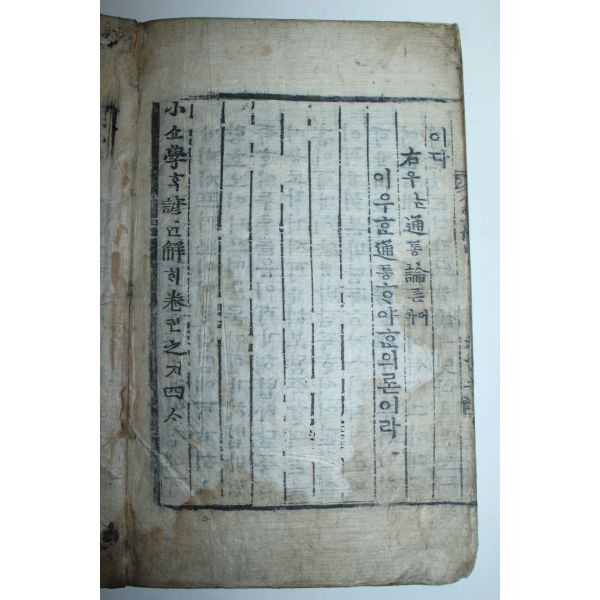 이다
右우ᄂᆞᆫ通통論론이라
이우ᄒᆞᆫ通통ᄒᆞ야ᄒᆞᆫ의론이라
小쇼學ᄒᆞᆨ諺언解ᄒᆡ卷권之지四ᄉᆞ